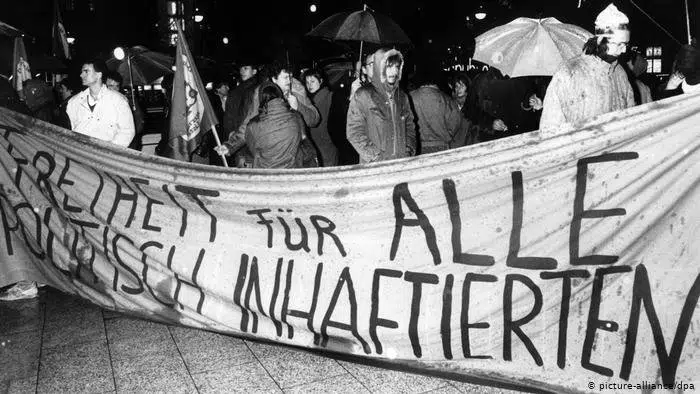 FREIHEIT FÜR ALLE
POLITISCH INHAFTIERTEN
© picture-alliance/dpa